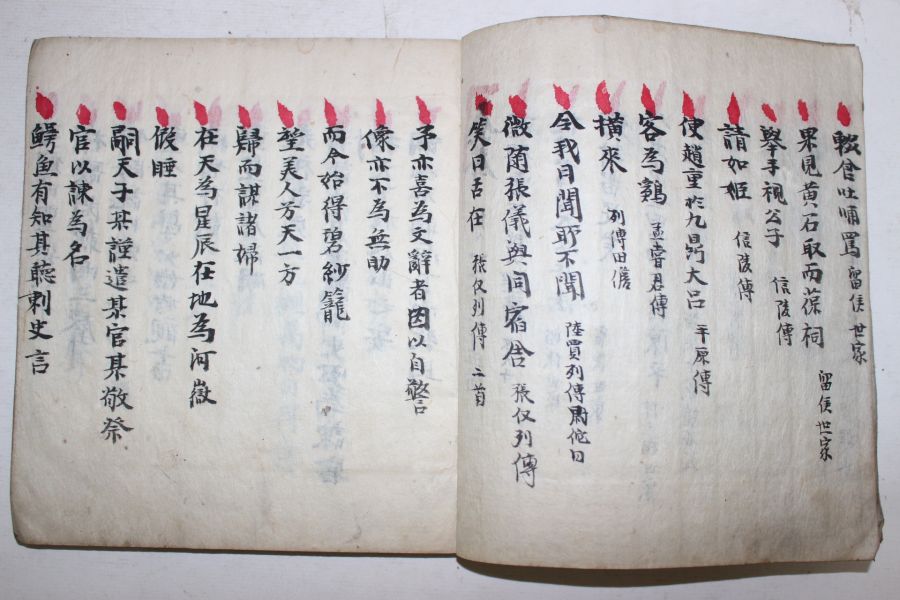 輟食吐哺罵 留侯世家
果見黃石取而葆祠 留侯世家
擧手視公子 信陵傳
請如姬 信陵傳
使趙重於九鼎大呂 平原傳
客為鷄 孟嘗君傳
橫來 列傳田儋
令我日聞所不聞 陸賈列傳尉佗曰
微隨張儀與同宿舍 張仪列傳
笑曰舌在 張仪列傳 二首
予亦喜為文辭者因以自警
像亦不為無助
而今始得碧紗籠
望美人兮天一方
歸而謀諸婦
在天為星辰在地為河嶽
假睡
嗣天子某謹遣某官某敬祭
官以諫為名
鰐魚有知其聽刺史言